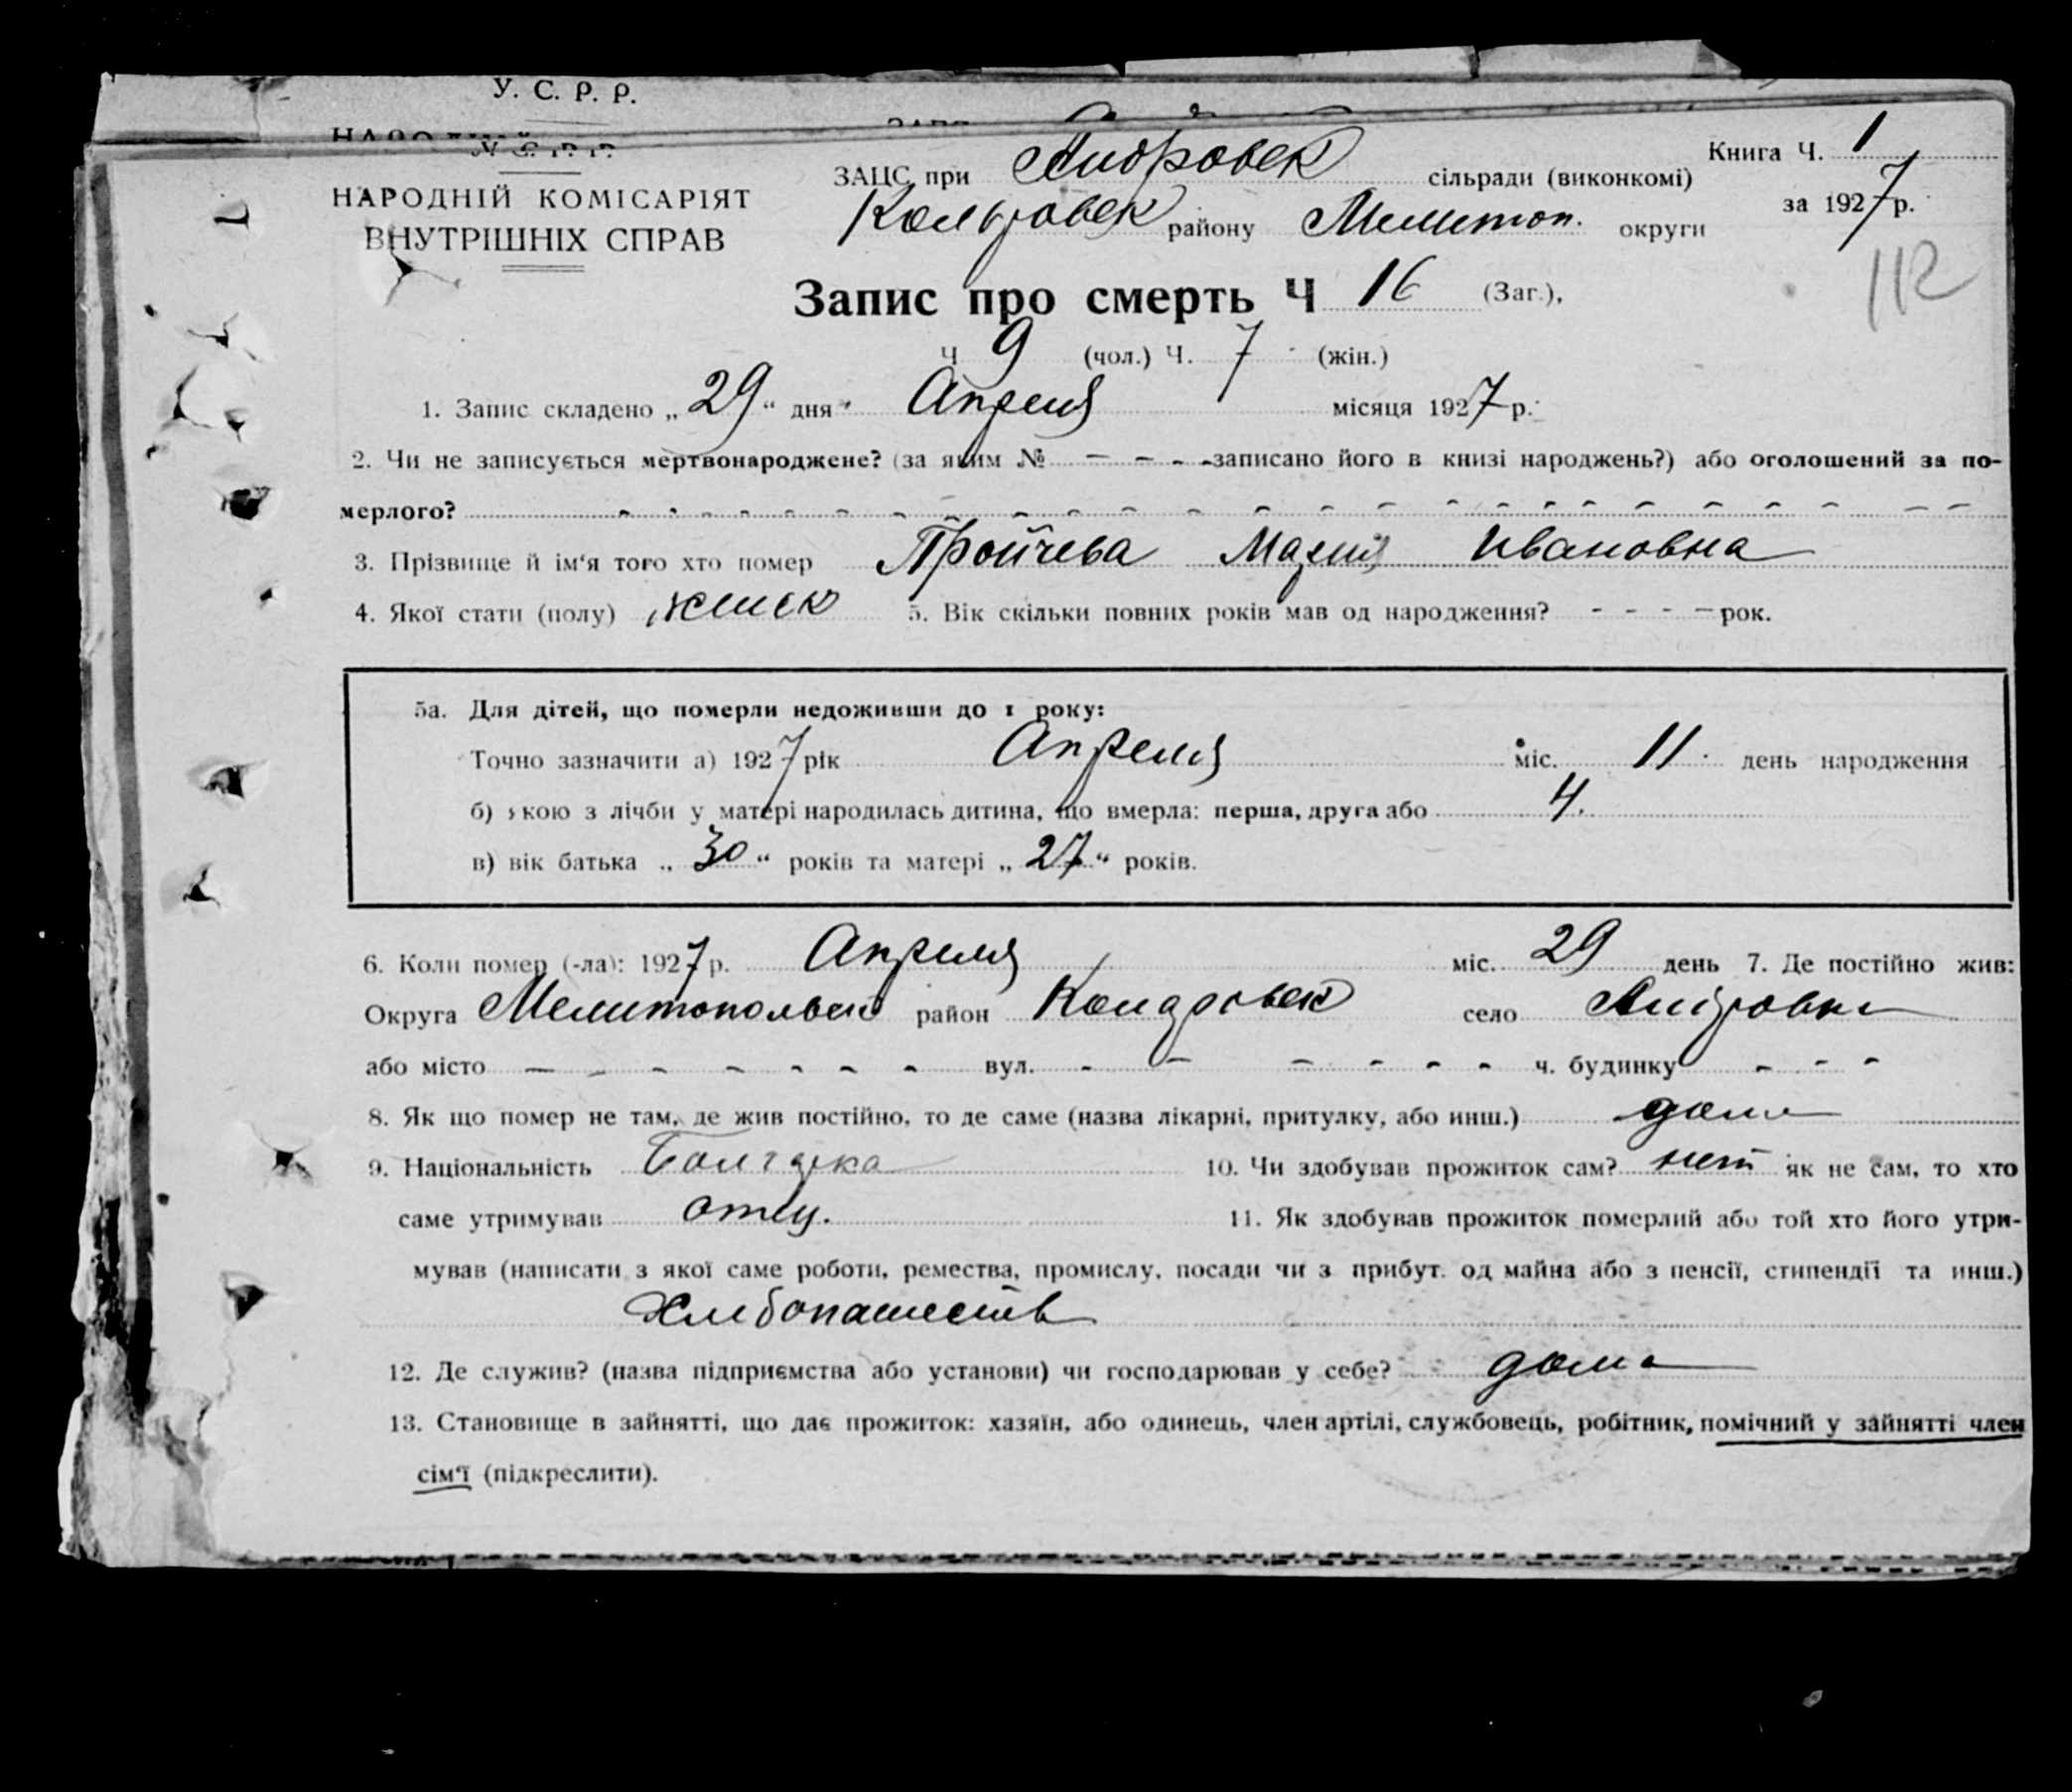 У. С. Р. Р.
У. С. Р. Р.
НАРОДНІЙ КОМІСАРІЯТ
ВНУТРІШНІХ СПРАВ
Книга Ч. 1
за 1927 р.
ЗАЦС при сільради (виконкомі)
району Мелитоп. округи
112
Запис про смерть Ч 16 (Заг.),
Ч 9 (чол.) Ч. 7 (жін.)
1. Запис складено „29“ дня Апреля місяця 1927 р.
2. Чи не записується мертвонароджене? (за яким № - - - - записано його в книзі народжень?) або оголошений за по-
мерлого?
3. Прізвище й ім'я того хто помер Пройчева Мария Ивановна
4. Якої стати (полу) женск 5. Вік скільки повних років мав од народження? - - - - рок.
5а. Для дітей, що померли недоживши до 1 року:
Точно зазначити а) 1927 рік Апреля міс. 11 день народження
б) якою з лічби у матері народилась дитина, що вмерла: перша, друга або 4.
в) вік батька „30“ років та матері „27“ років.
6. Коли помер (-ла): 1927 р. Апреля міс. 29 день 7. Де постійно жив:
Округа район село
або місто - - - - - - - вул. - - - - - - ч. будинку - - - -
8. Як що помер не там, де жив постійно, то де саме (назва лікарні, притулку, або инш.) дома
9. Національність Болгарка 10. Чи здобував прожиток сам? нет як не сам, то хто
саме утримував отец. 11. Як здобував прожиток померлий або той хто його утри-
мував (написати з якої саме роботи, ремества, промислу, посади чи з прибут. од майна або з пенсії, стипендії та инш.)
Хлебопашеств
12. Де служив? (назва підприємства або установи) чи господарював у себе? дома
13. Становище в зайнятті, що дає прожиток: хазяїн, або одинець, член артілі, службовець, робітник, помічний у зайнятті член
сім'ї (підкреслити).